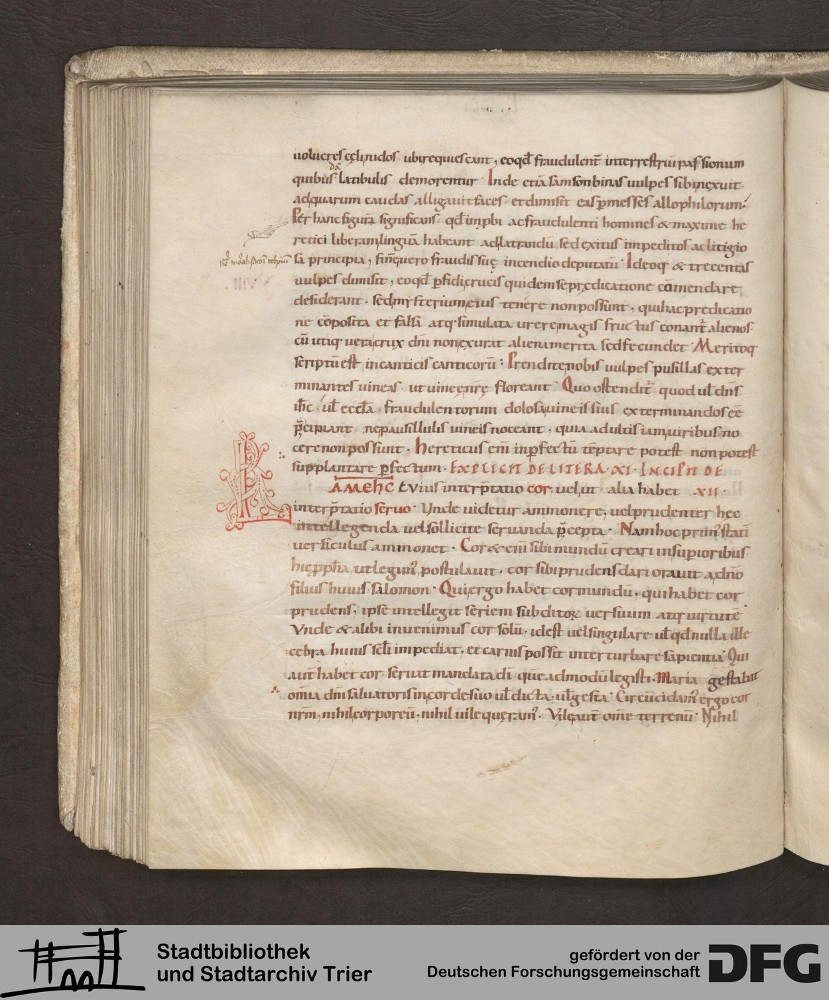 uolucres cęli nidos ubi requiescant, eo qd̄ fraudulent̄ in terrestriū passionum
quibus latibulis demorentur. Inde etiā samson binas uulpes sibi nexuit.
ad quarum caudas alligauit faces. et dimisit eas p messes allophilorum.
Per hanc figurā significans qd̄ impbi ac fraudulenti homines & maxime he
retici liberam linguā habeant ad latrandū sed exitus impeditos ac litigio
sa principia, finē uero fraudis suę incendio deputatū. Ideoq; & trecentas
uulpes dimisit, eo qd̄ pfidi crucis quidem se predicatione cōmendare
desiderant. sed mysterium eius tenere non possunt, qui hac predicatio
ne cōposita et falsa atq; simulata urere magis fructus conant̄ alienos.
cū utiq; uera crux dn̄i non exurat aliena merita sed fecundet. Meritoq;
scriptū est in canticis canticorū: Prendite nobis uulpes pusillas exter
minantes uineas ut uineę nrę floreant. Quo ostendit̄ quod ul̄ dn̄s
ih̄c. ul̄ eccl̄a, fraudulentorum dolosa, uineis suis exterminandos eē
p̄cipiant ne pausillulis uineis noceant, quia adultis iam uiribus no
cere non possunt. hereticus eni inpfectū tēptare potest non potest
supplantare pfectum. EXPLICIT DE LITERA. XI. INCIPIT DE
LAMEHC Cuius interp̄tatio cor. uel, ut alia habet .XII.
interp̄tatio seruo. Vnde uidetur ammonere, uel prudenter hec
intellegenda uel sollicite seruanda p̄cepta. Nam hoc prim' statī
uersiculus ammonet. Cor & eni sibi mundū creari in supioribus
hic ppħa, ut legim' postulauit. cor sibi prudens dari orauit a dn̄o
filius huius salomon. Qui ergo habet cor mundū, qui habet cor
prudens, ipse intellegit seriem subditoꝝ uersuum atq; uirtutē.
Vnde & alibi inuenimus cor solū, idest uel singulare ul̄ qd̄ nulla ille
cebra huius sc̄li impediat, et carnis possit interturbare sapientia. Qui
aut̄ habet cor seruat mandata dī quę admodū legisti. Maria gestabat
om̄ia dn̄i saluatoris in corde suo ul̄ dicta, ul̄ gesta. Circūcidam' ergo cor
nr̄m, nihil corporeū, nihil uile queram'. Vile aut̄ om̄e terrenū. Nihil
Stadtbibliothek
und Stadtarchiv Trier
gefördert von der
Deutschen Forschungsgemeinschaft
DFG